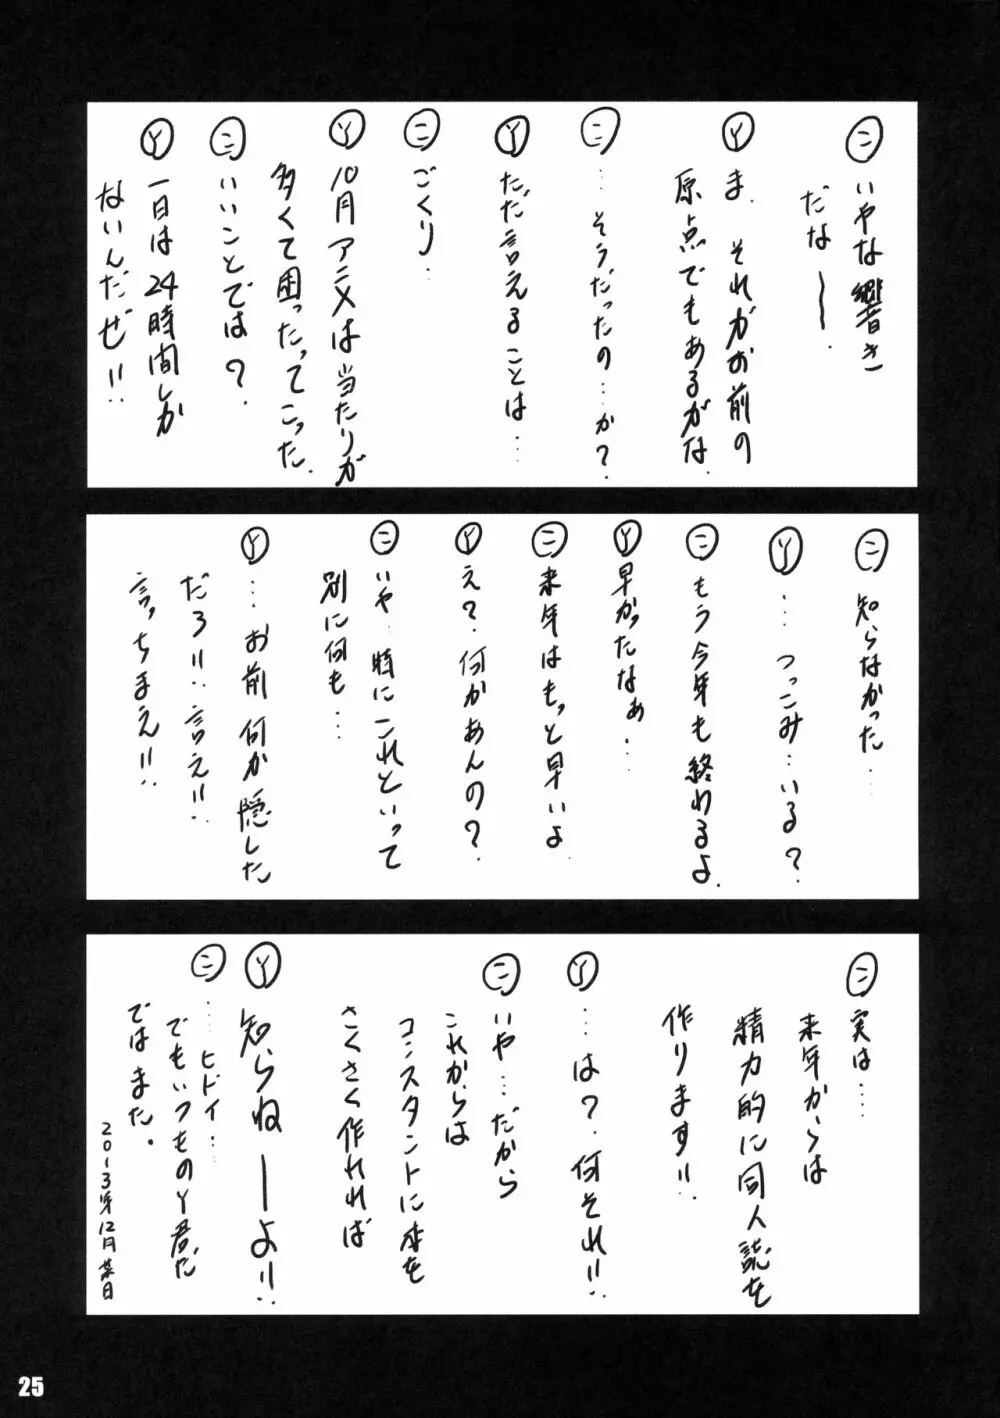 ㊁ いやな響き
だなー.
Ⓨ ま. それがお前の
原点でもあるがな.
㊁ …そうだったの…か?
Ⓨ ただ言えることは…
㊁ ごくり…
Ⓨ 10月アニメは当たりが
多くて困ったってこった.
㊁ いいことでは?
Ⓨ 一日は24時間しか
ないんだぜ!!
㊁ 知らなかった…
Ⓨ …つっこみ…いる?
㊁ もう今年も終わるよ.
Ⓨ 早かったなぁ…
㊁ 来年はもっと早いよ.
Ⓨ え?何かあんの?
㊁ いや…特にこれといって
別に何も…
Ⓨ …お前何か隠した
だろ!!言え!!
言っちまえ!!
㊁ 実は…
来年からは
精力的に同人誌を
作ります!!
Ⓨ …は?何それ!!
㊁ いや…だから
これからは
コンスタントに本を
さくさく作れれば
Ⓨ 知らねーよ!!
㊁ ……ヒドイ…
でもいつものY君だ
ではまた。
2013年12月某日
25